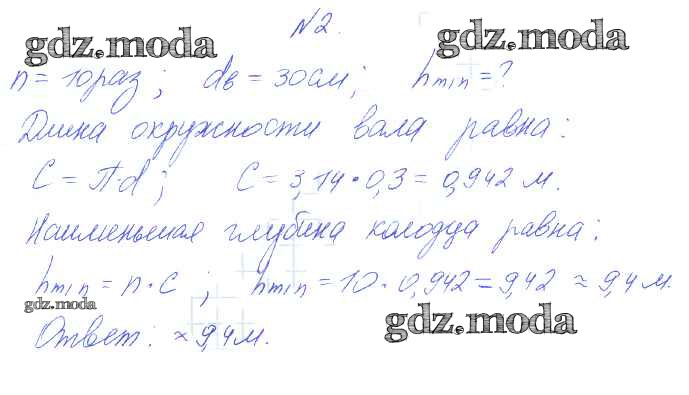 №2.
gdz.moda gdz.moda
n = 10 раз; dв = 30см; hmin = ?
Длина окружности вала равна:
C = П·d; C = 3,14 · 0,3 = 0,942 м.
Наименьшая глубина колодца равна:
hmin = n · C; hmin = 10 · 0,942 = 9,42 ≈ 9,4 м.
gdz.moda
Ответ: ≈ 9,4м.
gdz.moda